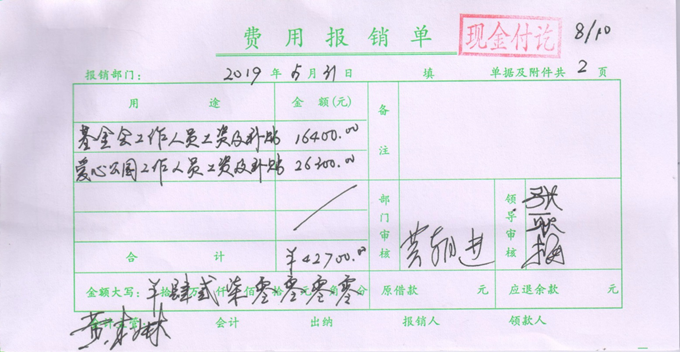 费用报销单
现金付讫
8/10
报销部门： 2019 年 5 月 31 日 填 单据及附件共 2 页
用途 金额(元) 备注
基金会工作人员工资及补贴 16400.00
爱心公园工作人员工资及补贴 26300.00
部门审核 领导审核
合计 ¥42700.00
金额大写： 肆 贰 柒 零 零 零 零 原借款 元 应退余款 元
会计 出纳 报销人 领款人